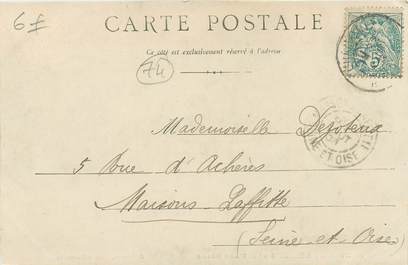 6f
CARTE POSTALE
Ce côté est exclusivement réservé à l'adresse
74
5
Mademoiselle
5 Rue d'Achères
ET OISE
Maisons Laffitte
(Seine et Oise)